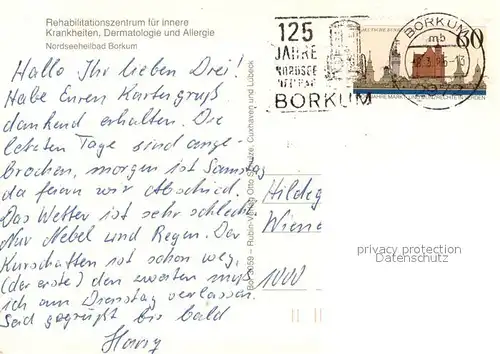 Rehabilitationszentrum für innere
Krankheiten, Dermatologie und Allergie
Nordseeheilbad Borkum
Hallo Ihr lieben Drei!
Habe Euren Kartengruß
dankend erhalten. Die
letzten Tage sind ange-
brochen, morgen ist Samstag
da feiern wir Abschied.
Das Wetter ist sehr schlecht
Nur Nebel und Regen. Der
Kurschatten ist schon weg,
(der erste) den zweiten muß
ich am Dienstag verlassen.
Seid gegrüßt bis bald
125
JAHRE
NORDSEE
HEILBAD
BORKUM
BORKUM
mb
60
2972
Rubin-Verlag Otto Schulze, Cuxhaven und Lübeck
Hildeg
Wiene
1000
privacy protection
Datenschutz